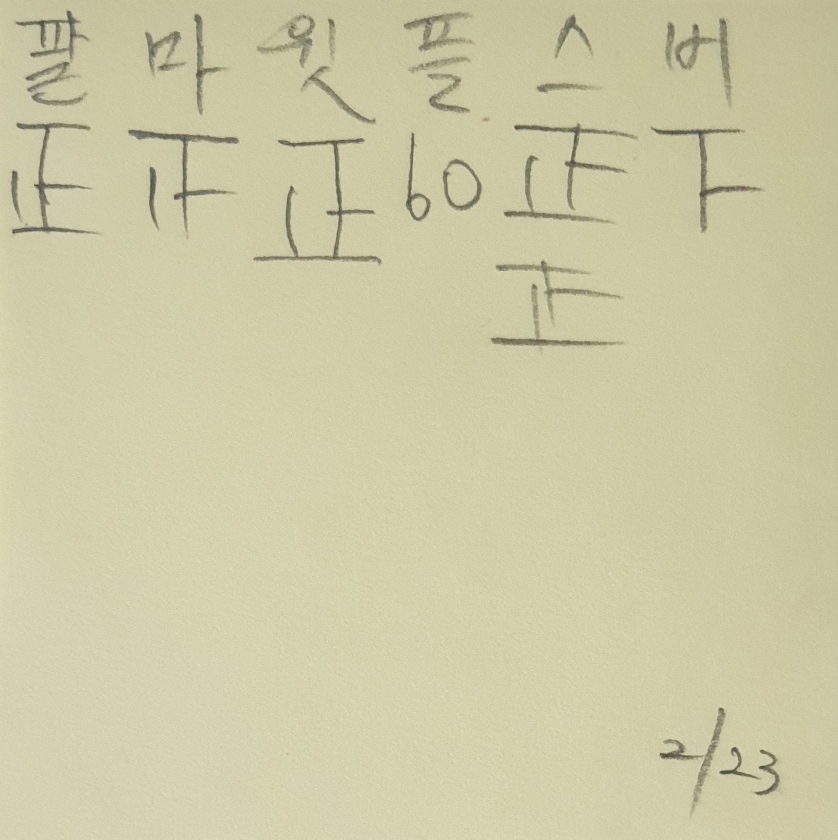 팔 마 윗 플 스 버
正 𣥂 正 60 正 下
正
2/23